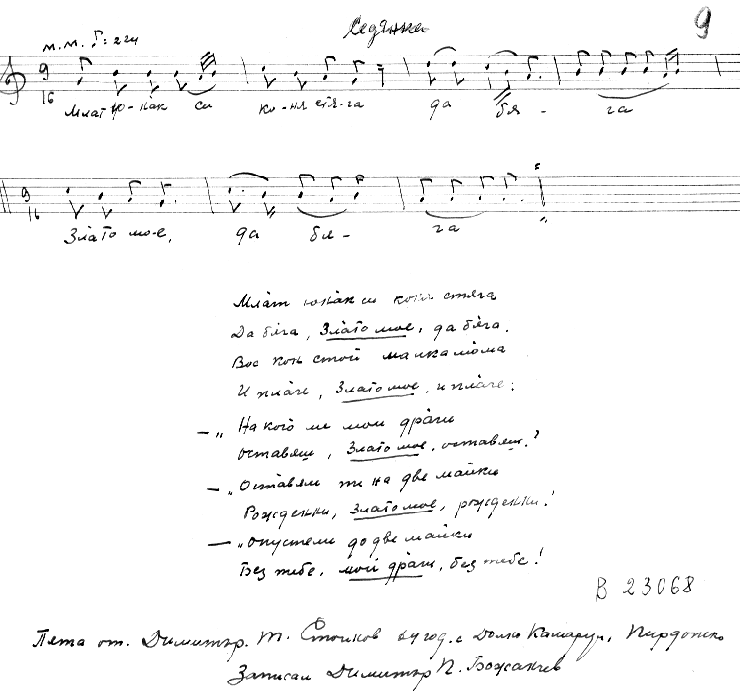 Седянка
9
М.М. ♪: 224
9
16
Млат ю-нак си ко-ня стя-га да бя - га
9
16
Злато мо-е, да бя- га
Млат юнак си конь стяга
Да бяга, Злато мое, да бяга.
Вос конь стои малка мома
И плаче, Злато мое, и плаче:
— „На кого ме мои драги
оставяш, Злато мое, оставяш?
— „Оставям ти на две майки
Рожденни, Злато мое, рожденни!
— „Опустели до две майки
Без тебе, мой драги, без тебе!
В 23068
Пята от. Димитър. Т. Стоиков год. с Долно Камарци, Пирдопско
Записал Димитър П. Божанчев